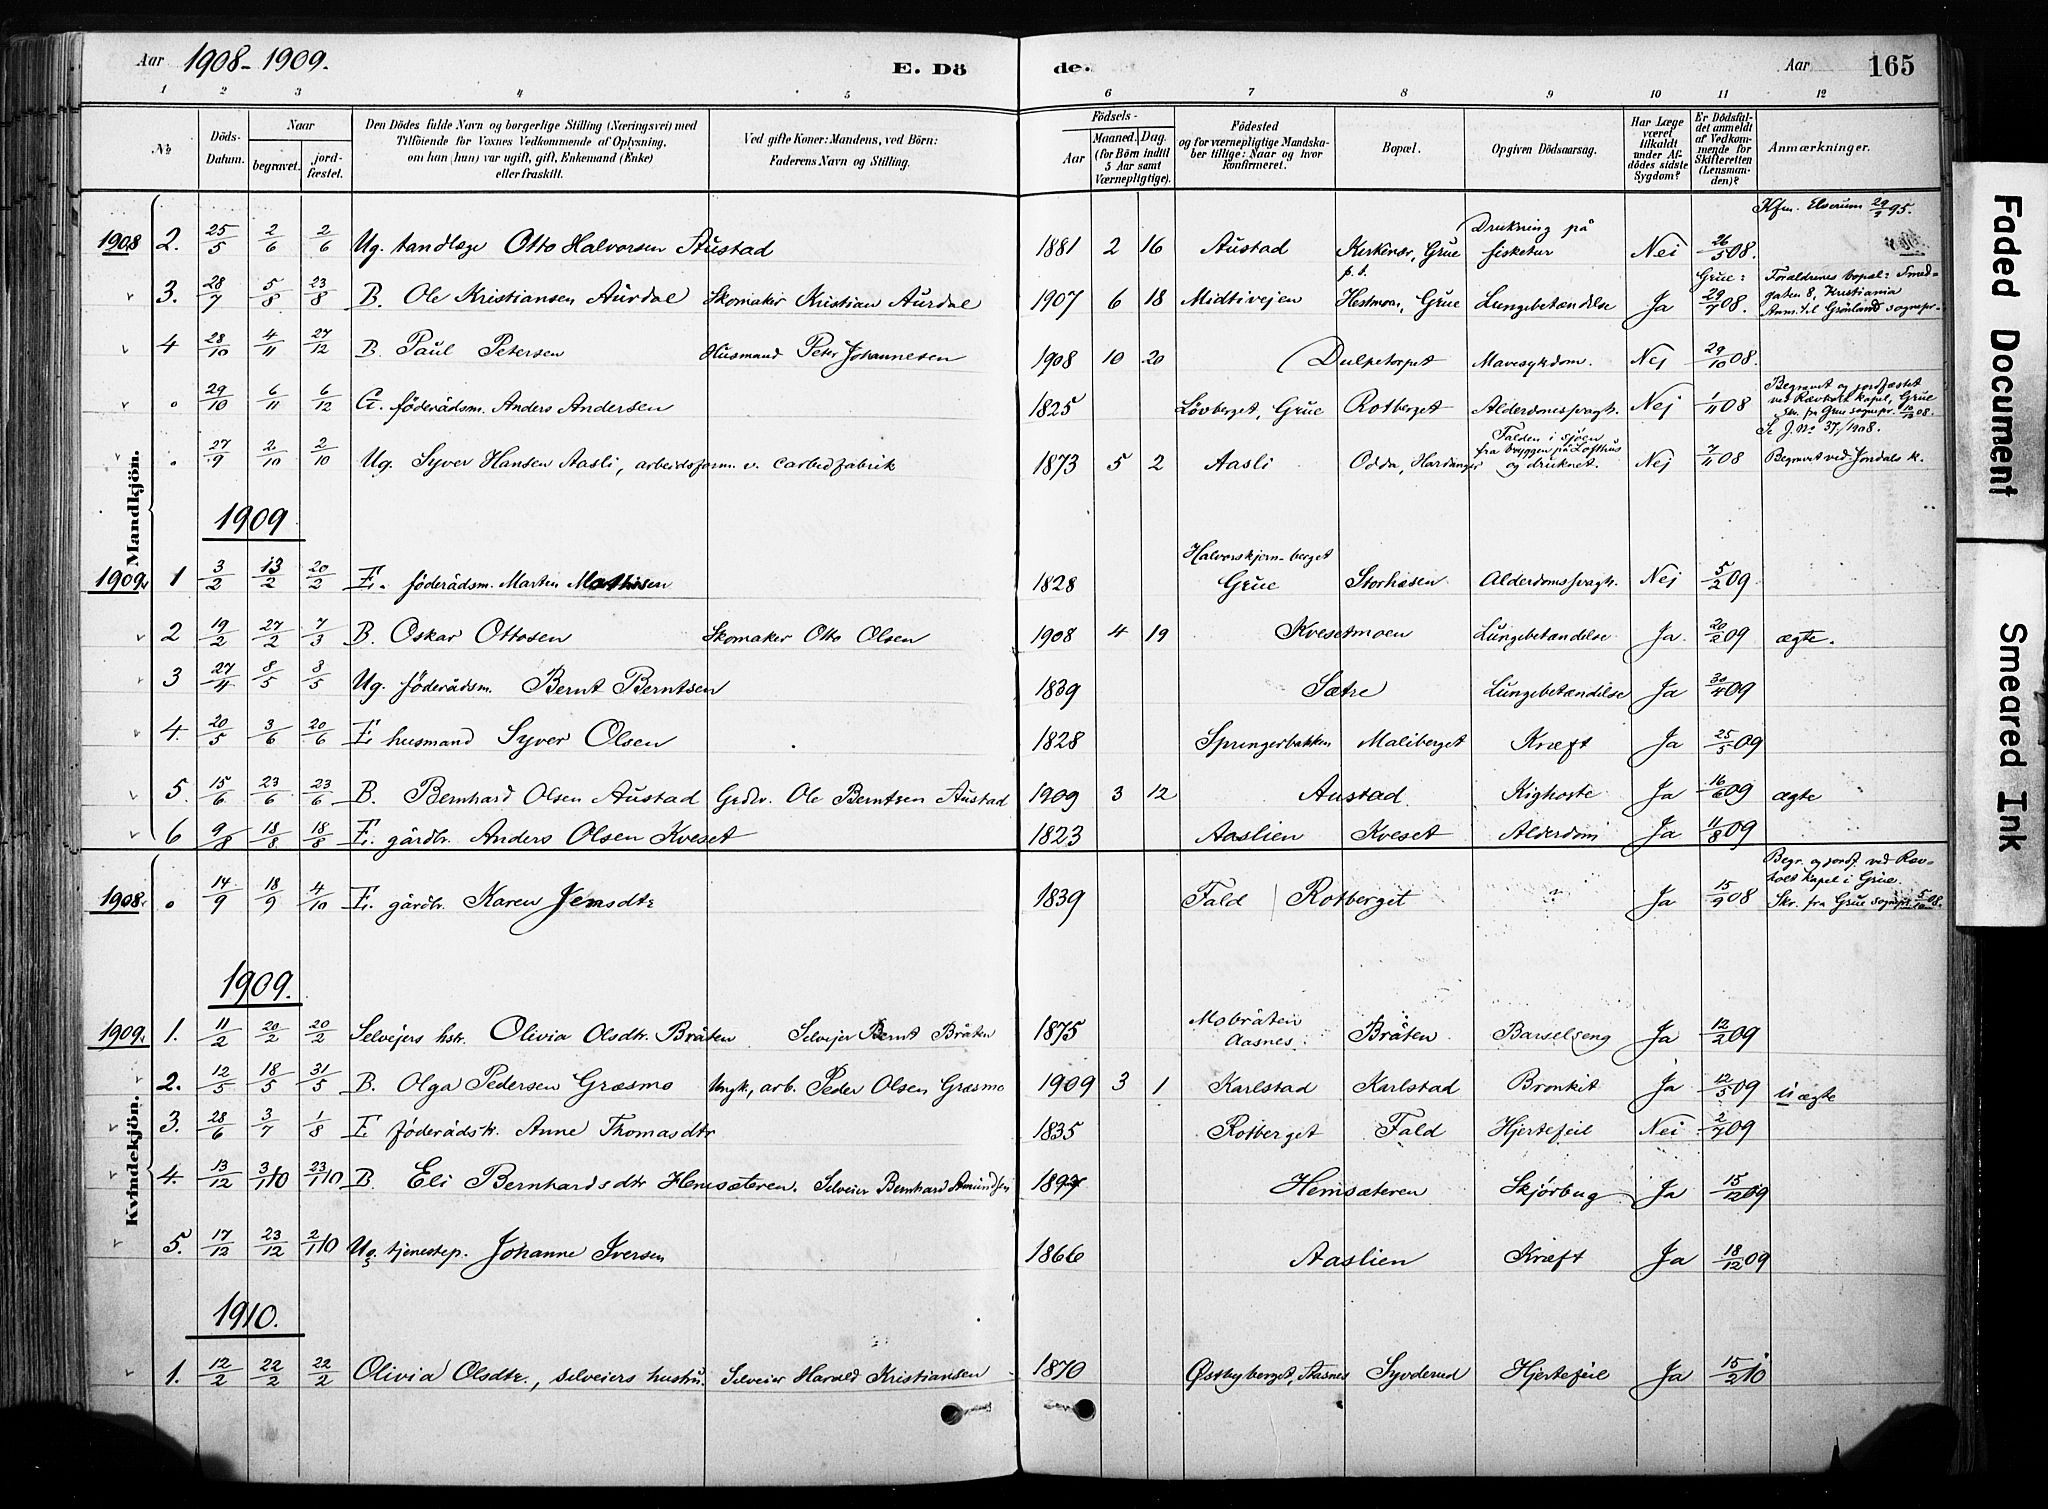 Aar 1908-1909. E. Dö de. Aar 165
1 2 3 4 5 6 7 8 9 10 11 12
№ Döds-Datum. Naar begravet. jord-fæstet. Den Dödes fulde Navn og borgerlige Stilling (Næringsvei) med Tilföiende for Voxnes Vedkommende af Oplysning, om han (hun) var ugift, gift, Enkemand (Enke) eller fraskilt. Ved gifte Koner: Mandens, ved Börn: Faderens Navn og Stilling. Födsels- Aar Maaned. Dag. (for Börn indtil 5 Aar samt Værnepligtige). Födested og for værnepligtige Mandskaber tillige: Naar og hvor konfirmeret. Bopæl. Opgiven Dödsaarsag. Har Læge været tilkaldt under Afdödes sidste Sygdom? Er Dödsfaldet anmeldt af Vedkommende for Skifteretten (Lensmanden)? Anmærkninger.
Mandkjön.
1908 2. 25/5 2/6 2/6 Ug. tandlæge Otto Halvorsen Austad 1881 2 16 Austad Kirkenær, Grue Drukning på fisketur Nei 26/5 08. Kfm. Elverum 29/9 95.
3. 28/7 5/8 23/8 B. Ole Kristiansen Aurdal Skomaker Kristian Aurdal 1907 6 18 Midtivejen p.t. Hestmoen, Grue Lungebetændelse Ja Grue: 29/7 08. Forældrenes bopæl: Smedgaten 8, Kristiania Anm. til Grönland sognepr.
4 28/10 4/11 27/12 B. Paul Petersen Husmand Peter Johannesen 1908 10 20 Dulpetorpet Mavesykdom. Nej 29/10 08.
29/10 6/11 6/12 G. föderådsm. Anders Andersen 1825 Lövberget, Grue Rotberget Alderdomssvagh. Nej 1/11 08 Begravet og jordfæstet ved Ravholt kapel, Grue Skr. fra Grue sognepr. 10/12 08. Se J. No 37/1908.
27/9 2/10 2/10 Ug. Syver Hansen Aasli, arbeidsform. v. carbidfabrik 1873 5 2 Aasli Odda, Hardanger Falden i sjöen fra bryggen på Lofthus og druknet. Nej 7/11 08 Begravet ved Jondals k.
1909
1909. 1 3/2 13/2 20/2 E. föderådsm. Martin Mathisen 1828 Halvorskjern-berget Grue Storhåsen Alderdomssvagh. Nej 5/2 09
2 19/2 27/2 7/3 B. Oskar Ottosen Skomaker Otto Olsen 1908 4 19 Kvesetmoen Lungebetændelse Ja. 20/2 09 ægte.
3 27/4 8/5 8/5 Ug. föderådsm. Bernt Berntsen 1839 Sætre Lungebetændelse Ja 30/4 09
4. 20/5 3/6 20/6 E. husmand Syver Olsen 1828 Springerbakken Maliberget Kræft Ja 25/5 09
5. 15/6 23/6 23/6 B. Bernhard Olsen Austad Grdbr. Ole Berntsen Austad 1909 3 12 Austad Kighoste Ja 16/6 09 ægte
6 9/8 18/8 18/8 E. gårdbr. Anders Olsen Kveset 1823 Aaslien Kveset Alderdom Ja 11/8 09
Kvindekjön.
1908. 14/9 18/9 4/10 E. gårdbr. Karen Jensdtr 1839 Fald Rotberget ? Ja 15/9 08 Begr. og jordf. ved Ravholt kapel i Grue. Skr. fra Grue sognepr. 5/10 08.
1909.
1909. 1. 11/2 20/2 20/2 Selvejers hstr. Olivia Olsdtr. Bråten Selvejer Bernt Bråten 1875 Mobråten Aasnes. Bråten Barselseng Ja 12/2 09
2. 12/5 18/5 31/5 B. Olga Pedersen Græsmo Ungk., arb. Peder Olsen Græsmo 1909 3 1 Karlstad Karlstad Bronkit Ja 12/5 09 uægte
3. 28/6 3/7 1/8 E. föderådsk. Anne Thomasdtr 1835 Rotberget Fald Hjertefeil Nei 2/7 09
4. 13/12 3/1 10 23/1 10 B. Eli Bernhardsdtr Hemsæteren. Selveier Bernhard Amundsen Hemsæteren Skjörbug Ja 15/12 09
5. 17/12 23/12 2/1 10 Ug. tjenestep. Johanne Iversen 1866 Aaslien Kræft Ja 18/12 09
1910.
1. 12/2 22/2 22/2 Olivia Olsdtr., selveiers hustru. Selveier Harald Kristiansen 1870 Østbyberget, Aasnes Syvderud Hjertefeil Ja 15/2 10
Faded Document
Smeared Ink